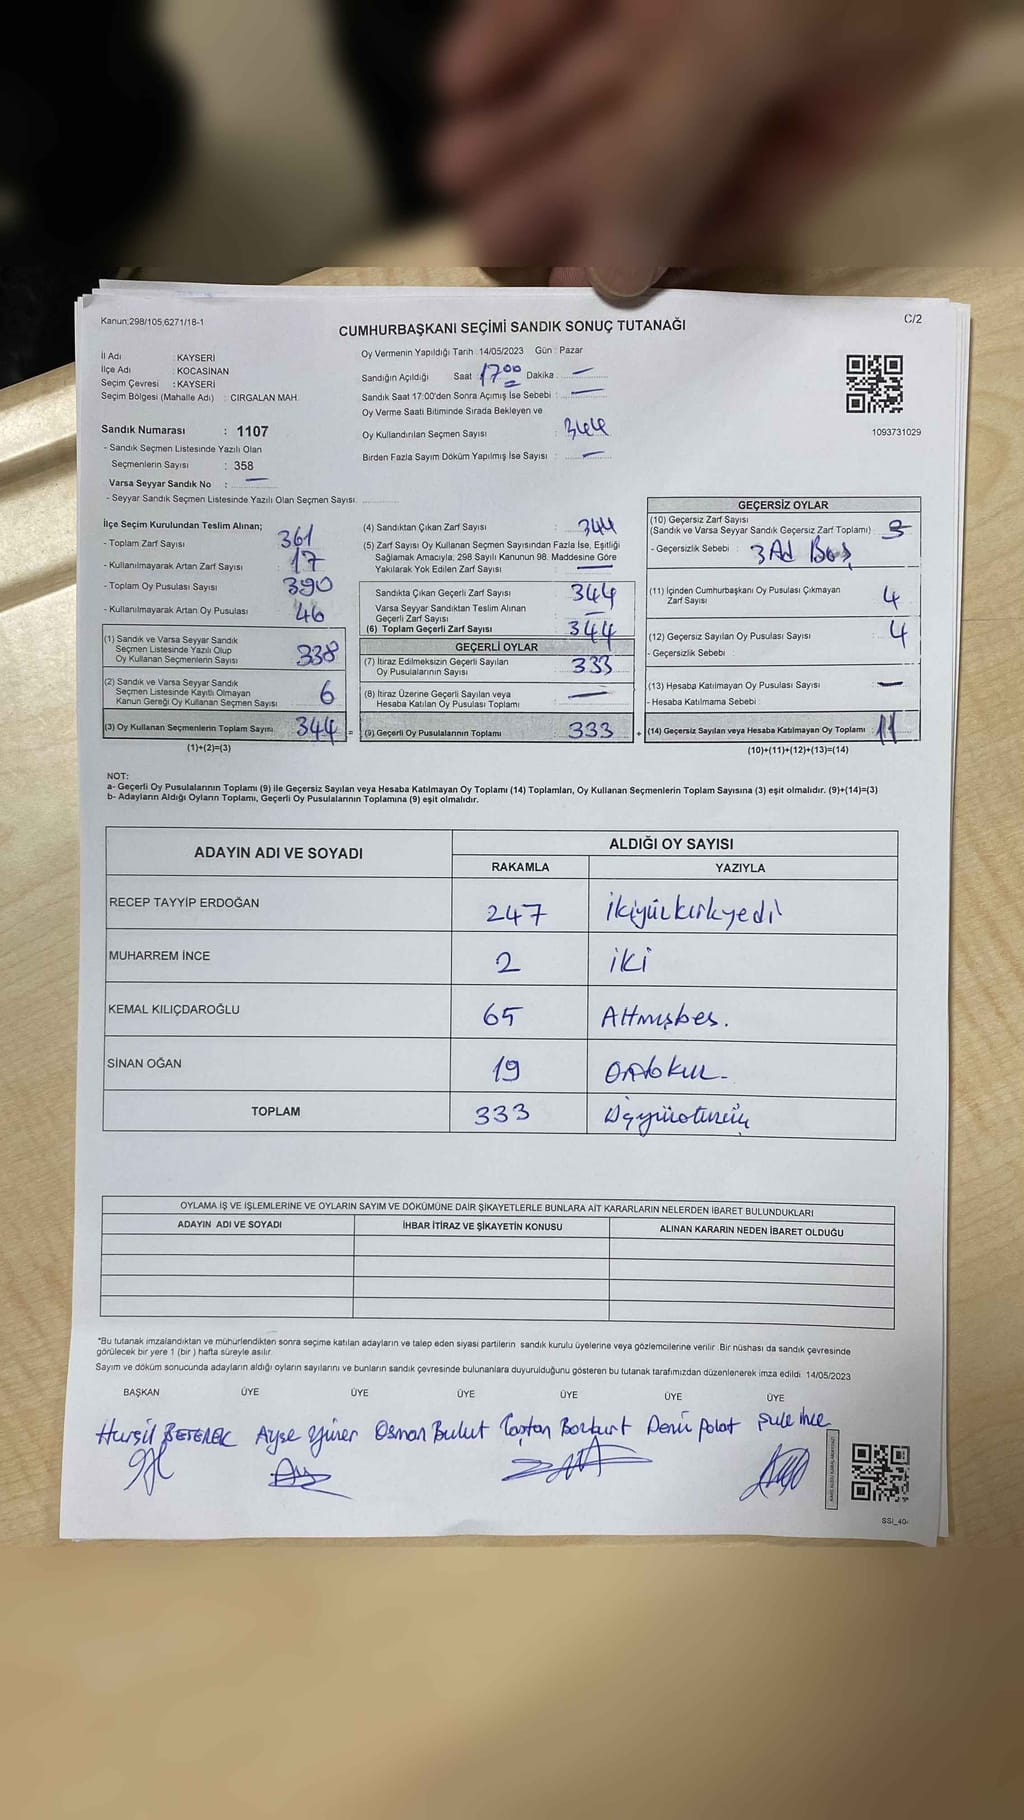 Kanun:298/105,6271/18-1
C/2
CUMHURBAŞKANI SEÇİMİ SANDIK SONUÇ TUTANAĞI
İl Adı : KAYSERİ
İlçe Adı : KOCASİNAN
Seçim Çevresi : KAYSERİ
Seçim Bölgesi (Mahalle Adı) : CIRGALAN MAH.
Sandık Numarası : 1107
- Sandık Seçmen Listesinde Yazılı Olan
Seçmenlerin Sayısı : 358
Varsa Seyyar Sandık No : —
- Seyyar Sandık Seçmen Listesinde Yazılı Olan Seçmen Sayısı
Oy Vermenin Yapıldığı Tarih : 14/05/2023 Gün : Pazar
Sandığın Açıldığı Saat 17:00 Dakika : —
Sandık Saat 17:00'den Sonra Açımış İse Sebebi : —
Oy Verme Saati Bitiminde Sırada Bekleyen ve
Oy Kullandırılan Seçmen Sayısı : 344
Birden Fazla Sayım Döküm Yapılmış İse Sayısı : —
1093731029
İlçe Seçim Kurulundan Teslim Alınan;
- Toplam Zarf Sayısı 361
- Kullanılmayarak Artan Zarf Sayısı 17
- Toplam Oy Pusulası Sayısı 390
- Kullanılmayarak Artan Oy Pusulası 46
(1) Sandık ve Varsa Seyyar Sandık
Seçmen Listesinde Yazılı Olup
Oy Kullanan Seçmenlerin Sayısı 338
(2) Sandık ve Varsa Seyyar Sandık
Seçmen Listesinde Kayıtlı Olmayan
Kanun Gereği Oy Kullanan Seçmen Sayısı 6
(3) Oy Kullanan Seçmenlerin Toplam Sayısı 344 =
(1)+(2)=(3)
(4) Sandıktan Çıkan Zarf Sayısı : 344
(5) Zarf Sayısı Oy Kullanan Seçmen Sayısından Fazla İse, Eşitliği
Sağlamak Amacıyla, 298 Sayılı Kanunun 98. Maddesine Göre
Yakılarak Yok Edilen Zarf Sayısı —
Sandıkta Çıkan Geçerli Zarf Sayısı 344
Varsa Seyyar Sandıktan Teslim Alınan
Geçerli Zarf Sayısı —
(6) Toplam Geçerli Zarf Sayısı 344
GEÇERLİ OYLAR
(7) İtiraz Edilmeksizin Geçerli Sayılan
Oy Pusulalarının Sayısı 333
(8) İtiraz Üzerine Geçerli Sayılan veya
Hesaba Katılan Oy Pusulası Toplamı —
(9) Geçerli Oy Pusulalarının Toplamı 333 +
GEÇERSİZ OYLAR
(10) Geçersiz Zarf Sayısı
(Sandık ve Varsa Seyyar Sandık Geçersiz Zarf Toplamı) : 3
- Geçersizlik Sebebi : 3 Ad Boş
(11) İçinden Cumhurbaşkanı Oy Pusulası Çıkmayan
Zarf Sayısı 4
(12) Geçersiz Sayılan Oy Pusulası Sayısı : 4
- Geçersizlik Sebebi :
(13) Hesaba Katılmayan Oy Pusulası Sayısı : —
- Hesaba Katılmama Sebebi :
(14) Geçersiz Sayılan veya Hesaba Katılmayan Oy Toplamı : 11
(10)+(11)+(12)+(13)=(14)
NOT:
a- Geçerli Oy Pusulalarının Toplamı (9) ile Geçersiz Sayılan veya Hesaba Katılmayan Oy Toplamı (14) Toplamları, Oy Kullanan Seçmenlerin Toplam Sayısına (3) eşit olmalıdır. (9)+(14)=(3)
b- Adayların Aldığı Oyların Toplamı, Geçerli Oy Pusulalarının Toplamına (9) eşit olmalıdır.
ADAYIN ADI VE SOYADI
ALDIĞI OY SAYISI
RAKAMLA YAZIYLA
RECEP TAYYİP ERDOĞAN 247 ikiyüzkırkyedi
MUHARREM İNCE 2 iki
KEMAL KILIÇDAROĞLU 65 Altmışbeş.
SİNAN OĞAN 19 Ondokuz.
TOPLAM 333 Üçyüzotuzüç
OYLAMA İŞ VE İŞLEMLERİNE VE OYLARIN SAYIM VE DÖKÜMÜNE DAİR ŞİKAYETLERLE BUNLARA AİT KARARLARIN NELERDEN İBARET BULUNDUKLARI
ADAYIN ADI VE SOYADI İHBAR İTİRAZ VE ŞİKAYETİN KONUSU ALINAN KARARIN NEDEN İBARET OLDUĞU
*Bu tutanak imzalandıktan ve mühürlendikten sonra seçime katılan adayların ve talep eden siyasi partilerin sandık kurulu üyelerine veya gözlemcilerine verilir .Bir nüshası da sandık çevresinde
görülecek bir yere 1 (bir ) hafta süreyle asılır.
Sayım ve döküm sonucunda adayların aldığı oyların sayılarını ve bunların sandık çevresinde bulunanlara duyurulduğunu gösteren bu tutanak tarafımızdan düzenlenerek imza edildi. 14/05/2023
BAŞKAN ÜYE ÜYE ÜYE ÜYE ÜYE ÜYE
Ayşe Osman Bulut Bozkurt Deniz Polat Şule İnce
SSI_40-